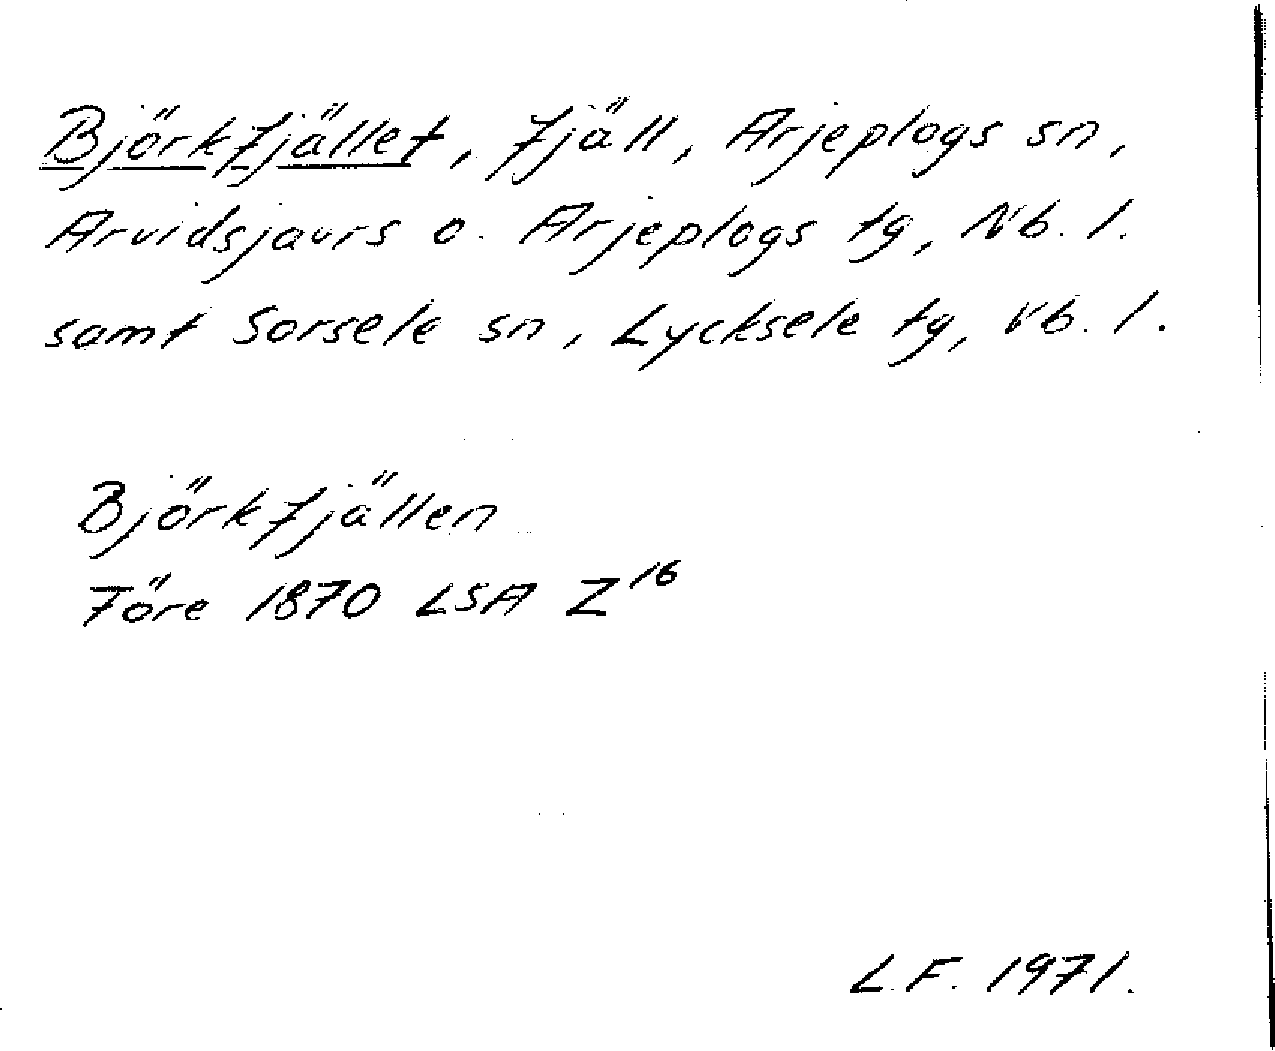 Björkfjället, fjäll, Arjeplogs sn,
Arvidsjaurs o. Arjeplogs tg, Nb. l.
samt Sorsele sn, Lycksele tg, Vb. l.
Björkfjällen
Före 1870 LSA Z¹⁶
L.F. 1971.